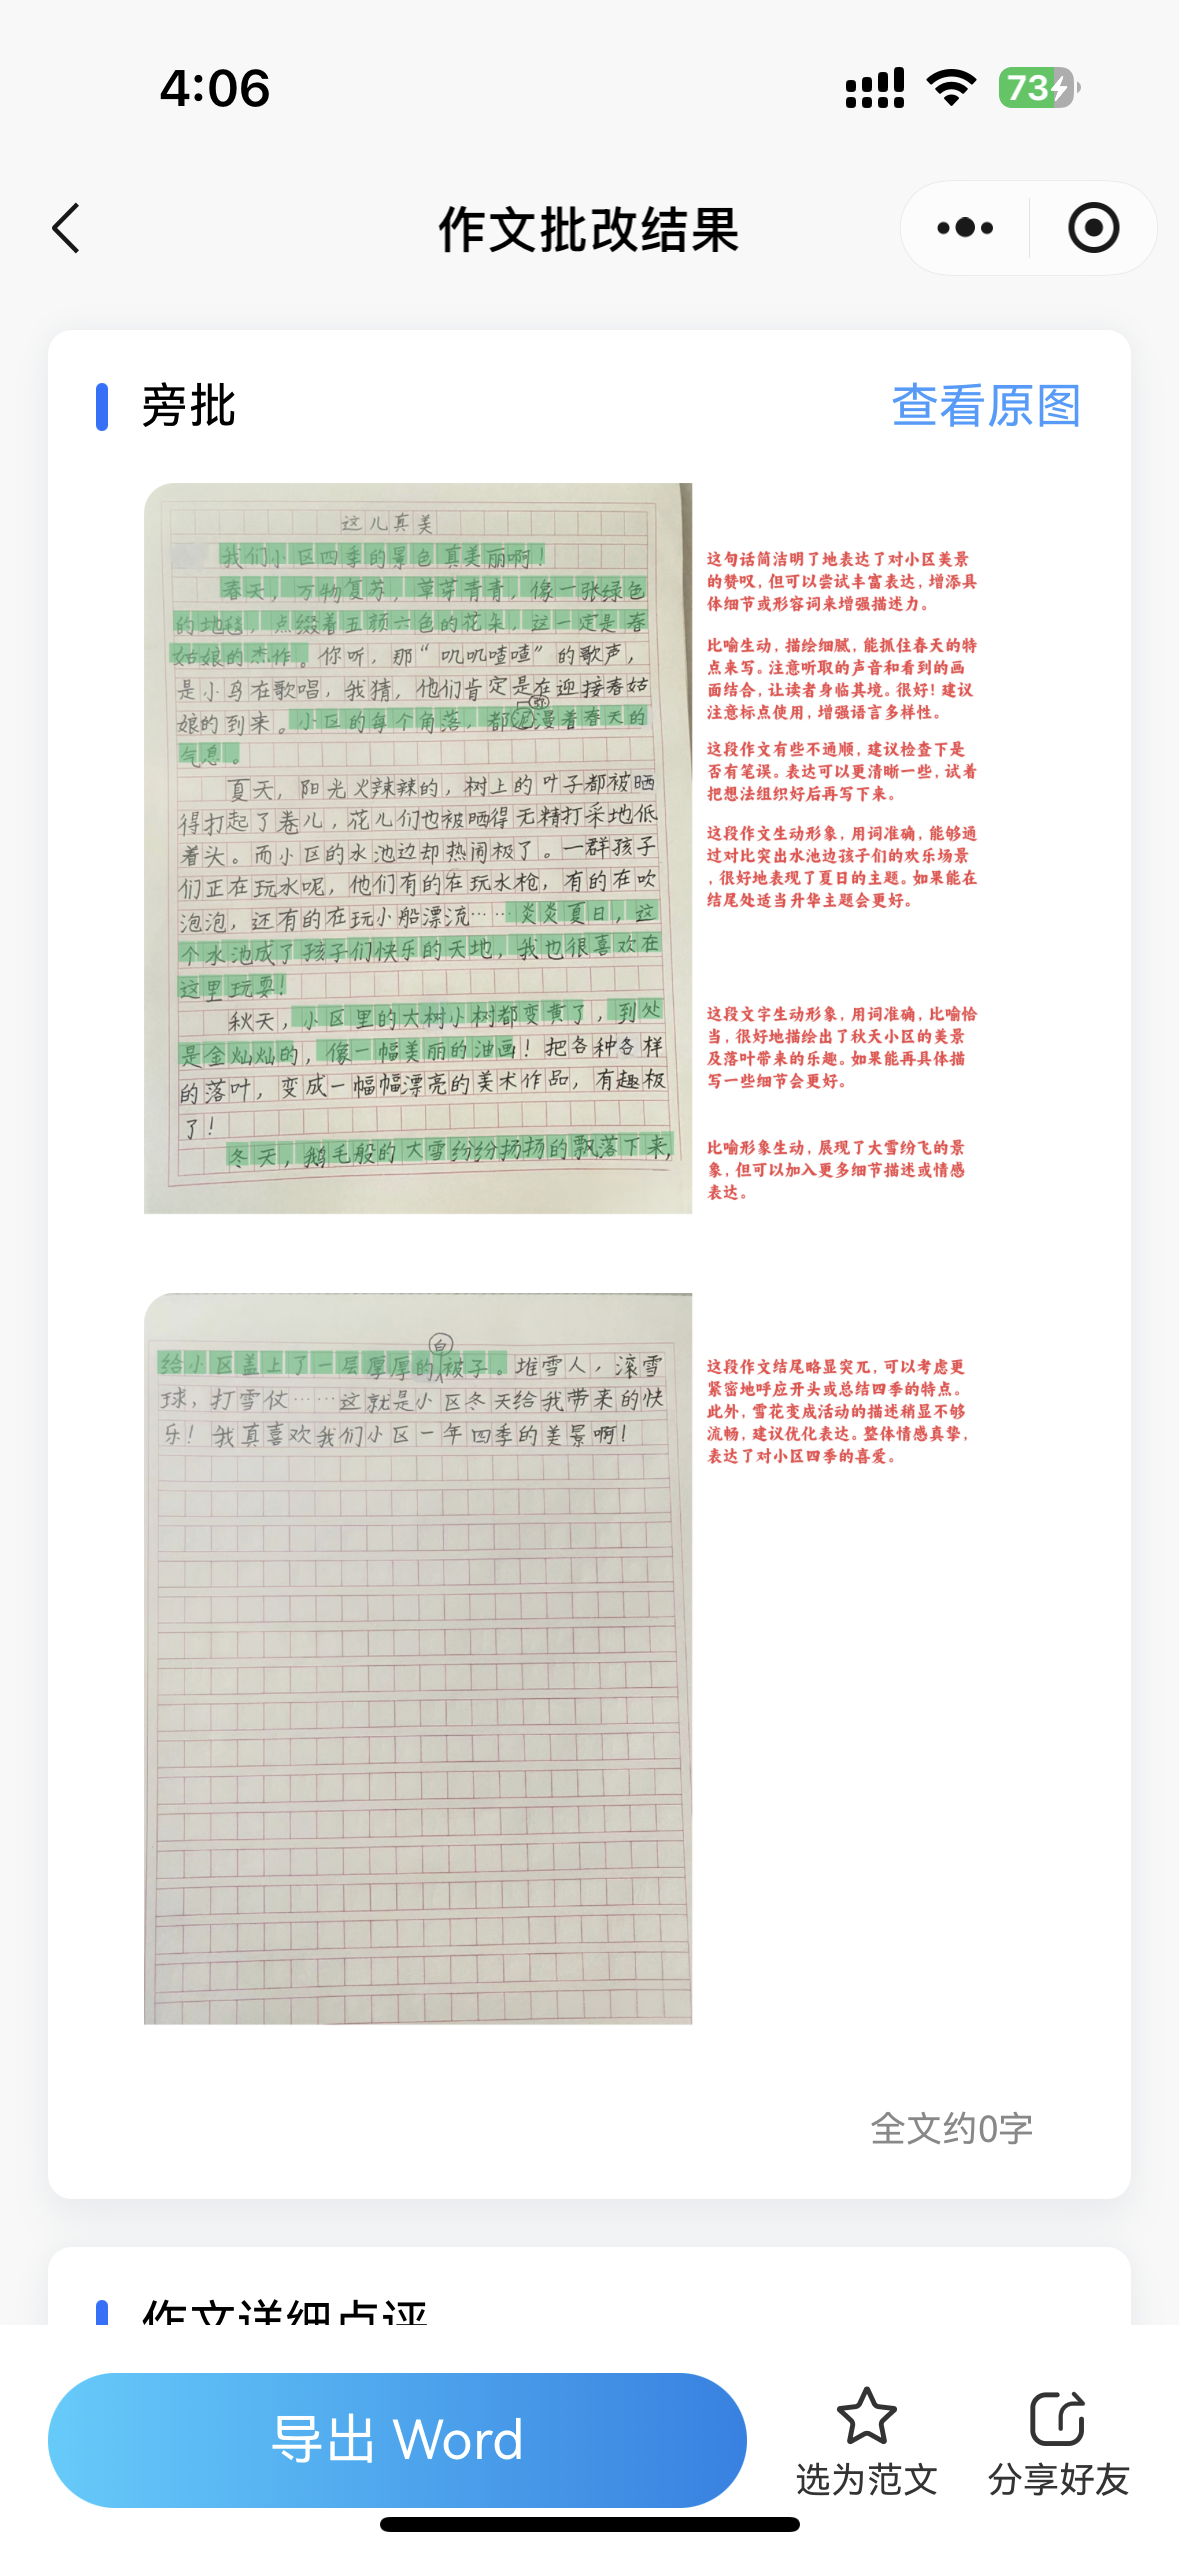 4:06
73
作文批改结果
旁批
查看原图
这儿真美
我们小区四季的景色真美丽啊！
春天，万物复苏，草芽青青，像一张绿色
的地毯，点缀着五颜六色的花朵，这一定是春
姑娘的杰作。你听，那“叽叽喳喳”的歌声，
是小鸟在歌唱，我猜，他们肯定是在迎接春姑
娘的到来。小区的每个角落，都弥漫着春天的
气息。
夏天，阳光火辣辣的，树上的叶子都被晒
得打起了卷儿，花儿们也被晒得无精打采地低
着头。而小区的水池边却热闹极了。一群孩子
们正在玩水呢，他们有的在玩水枪，有的在吹
泡泡，还有的在玩小船漂流……炎炎夏日，这
个水池成了孩子们快乐的天地，我也很喜欢在
这里玩耍！
秋天，小区里的大树小树都变黄了，到处
是金灿灿的，像一幅美丽的油画！把各种各样
的落叶，变成一幅幅漂亮的美术作品，有趣极
了！
冬天，鹅毛般的大雪纷纷扬扬的飘落下来，
这句话简洁明了地表达了对小区美景
的赞叹，但可以尝试丰富表达，增添具
体细节或形容词来增强描述力。
比喻生动，描绘细腻，能抓住春天的特
点来写。注意听取的声音和看到的画
面结合，让读者身临其境。很好！建议
注意标点使用，增强语言多样性。
这段作文有些不通顺，建议检查下是
否有笔误。表达可以更清晰一些，试着
把想法组织好后再写下来。
这段作文生动形象，用词准确，能够通
过对比突出水池边孩子们的欢乐场景
，很好地表现了夏日的主题。如果能在
结尾处适当升华主题会更好。
这段文字生动形象，用词准确，比喻恰
当，很好地描绘出了秋天小区的美景
及落叶带来的乐趣。如果能再具体描
写一些细节会更好。
比喻形象生动，展现了大雪纷飞的景
象，但可以加入更多细节描述或情感
表达。
白
给小区盖上了一层厚厚的被子。堆雪人，滚雪
球，打雪仗……这就是小区冬天给我带来的快
乐！我真喜欢我们小区一年四季的美景啊！
这段作文结尾略显突兀，可以考虑更
紧密地呼应开头或总结四季的特点。
此外，雪花变成活动的描述稍显不够
流畅，建议优化表达。整体情感真挚，
表达了对小区四季的喜爱。
全文约0字
作文详细点评
导出 Word
选为范文
分享好友